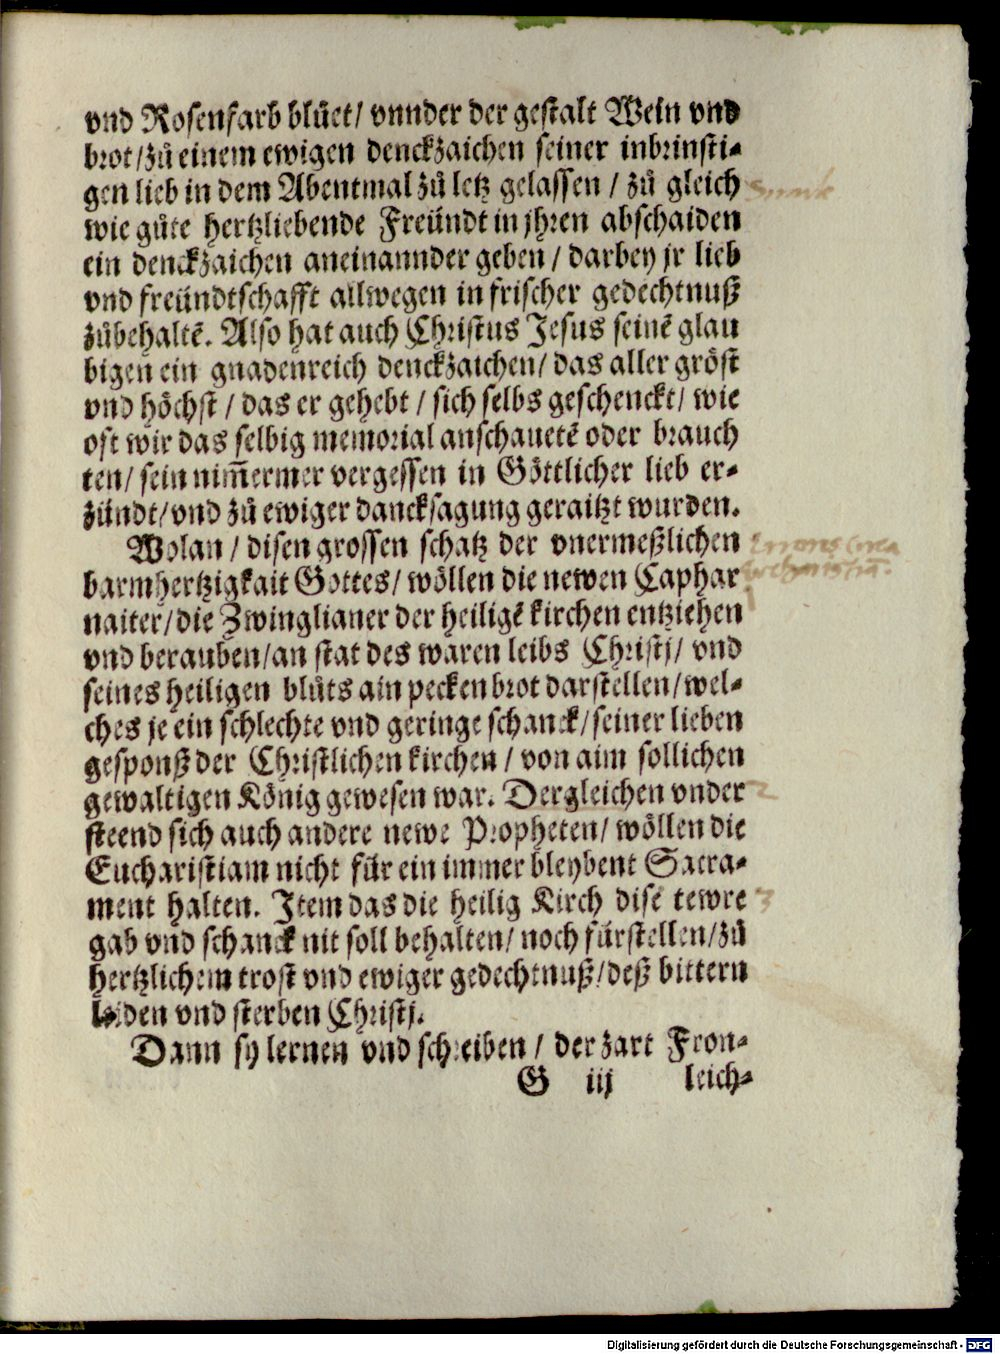 vnd Rosenfarb blůet/ vnnder der gestalt Wein vnd
brot/zů einem ewigen denckzaichen seiner inbrinsti⸗
gen lieb in dem Abentmal zů letz gelassen / zů gleich
wie gůte hertzliebende Freündt in jhren abschaiden
ein denckzaichen aneinannder geben / darbey jr lieb
vnd freündtschafft allwegen in frischer gedechtnuß
zůbehaltē. Also hat auch Christus Jesus seinē glau
bigen ein gnadenreich denckzaichen/ das aller gröst
vnd höchst / das er gehebt / sich selbs geschenckt/ wie
oft wir das selbig memorial anschauetē oder brauch
ten/ sein nim̄ermer vergessen in Göttlicher lieb er⸗
zündt/vnd zů ewiger dancksagung geraitzt wurden.
Wolan / disen grossen schatz der vnermeßlichen
barmhertzigkait Gottes/ wöllen die newen Caphar
naiter/die Zwinglianer der heiligē kirchen entziehen
vnd berauben/an stat des waren leibs Christj/ vnd
seines heiligen blůts ain pecken brot darstellen/wel⸗
ches je ein schlechte vnd geringe schanck/seiner lieben
gesponß der Christlichen kirchen / von aim sollichen
gewaltigen König gewesen war. Dergleichen vnder
steend sich auch andere newe Propheten/ wöllen die
Eucharistiam nicht für ein immer bleybent Sacra⸗
ment halten. Item das die heilig Kirch dise tewre
gab vnd schanck nit soll behalten/ noch fürstellen/zů
hertzlichem trost vnd ewiger gedechtnuß/deß bittern
leiden vnd sterben Christj.
Dann sy lernen vnd schreiben / der zart Fron⸗
G iij leich⸗
Digitalisierung gefördert durch die Deutsche Forschungsgemeinschaft - DFG